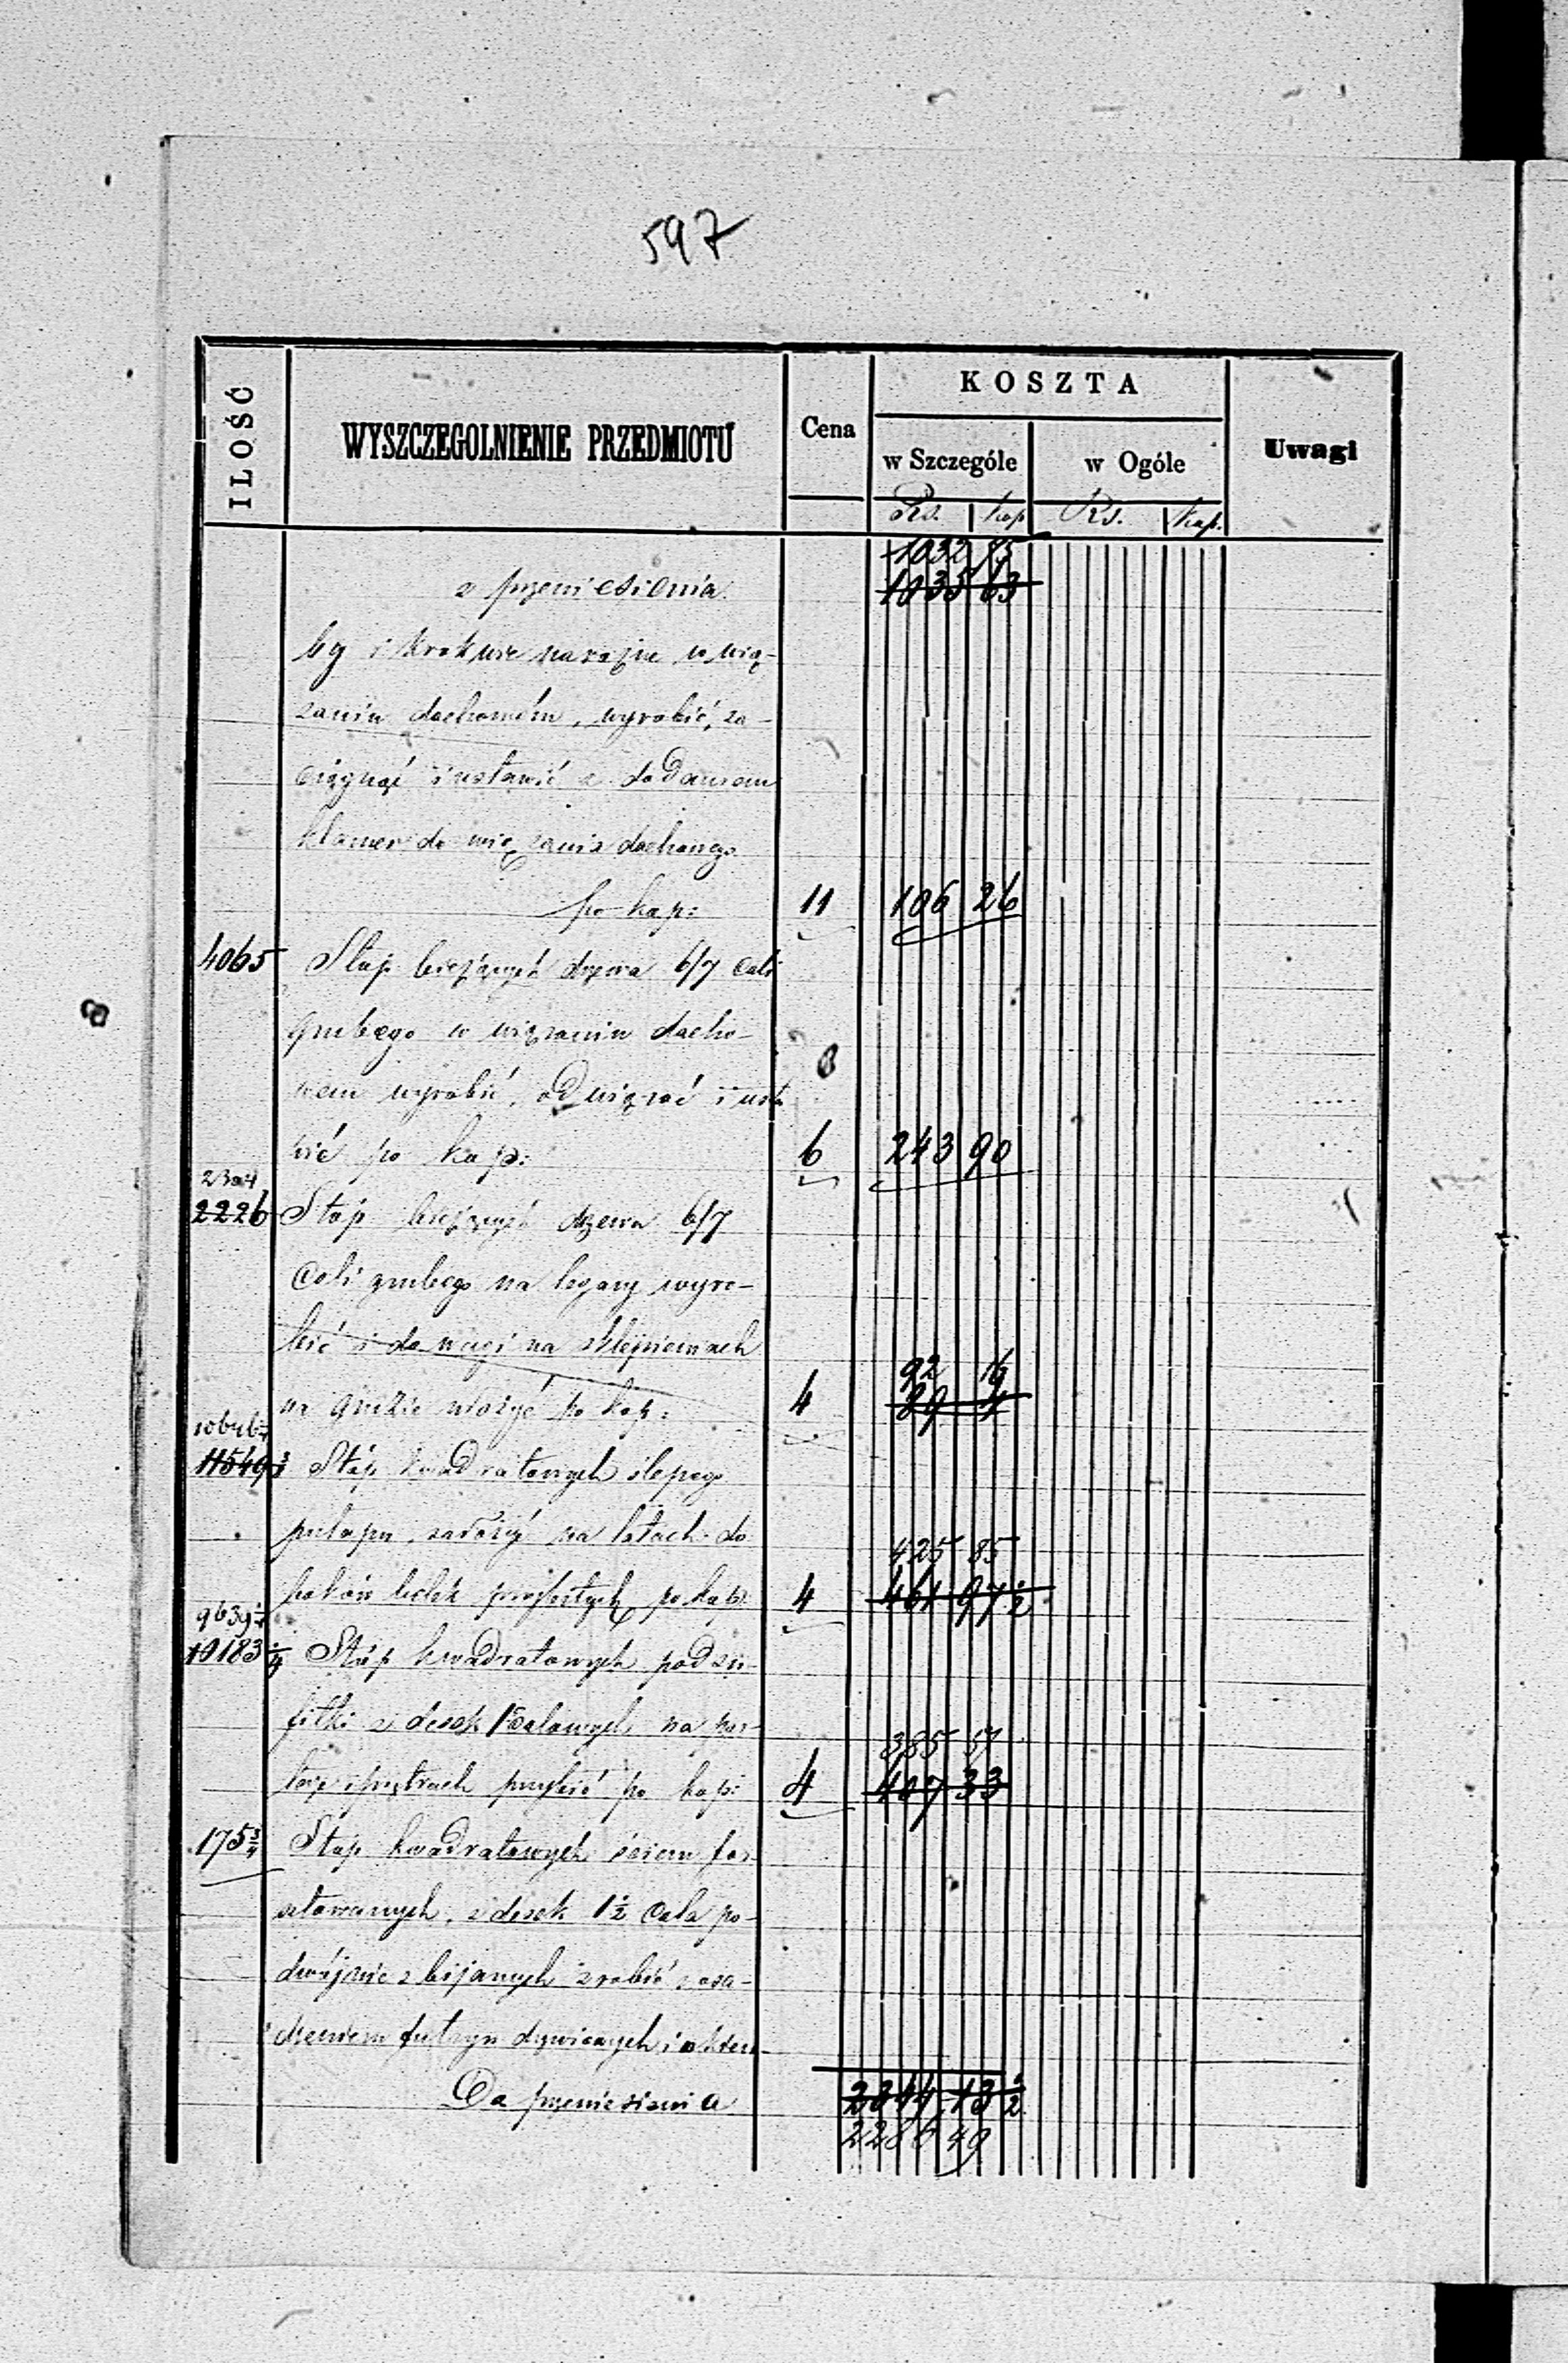 597
ILOŚĆ WYSZCZEGOLNIENIE PRZEDMIOTU Cena KOSZTA Uwagi
w Szczególe w Ogóle
Rs. kop Rs. kap.
1032 75
z przeniesienia 1035 63
by i krokwie narożne w wią-
zaniu dachowém, wyrobić, za-
ciągnąć i ustawić z dodaniem
klamer do wiązania dachowego
po kap: 11 106 26
4065 Stóp bieżących drzewa 6/7 cali
grubego w wiązaniu dacho-
wem wyrobić, odwiązać i usta
wić po kap: 6 243 90
2304
2226 Stóp bieżących drzewa 6/7
Cali grubego na legary wyro-
bić i do wagi na sklepieniach
92 16
na gruzie ułożyć po kop: 4 89 4
10646¼
11549⅓ Stóp kwadratowych ślepego
pułapu, założyć na łatach do
425 85
boków belek przybitych po kap. 4 461 97½
9639¼
10183¼ Stóp kwadratowych podsu-
fitki z desek 1 calowych na par-
385 57
terze i piętrach przybić po kap: 4 407 33
175¾ Stóp kwadratowych ścian for-
sztowanych, z desek 1½ Cala po-
dwójnie zbijanych zrobić z osa-
dzeniem futryn drzwiowych i okien-
Do przeniesienia 2344 13½
2286 49